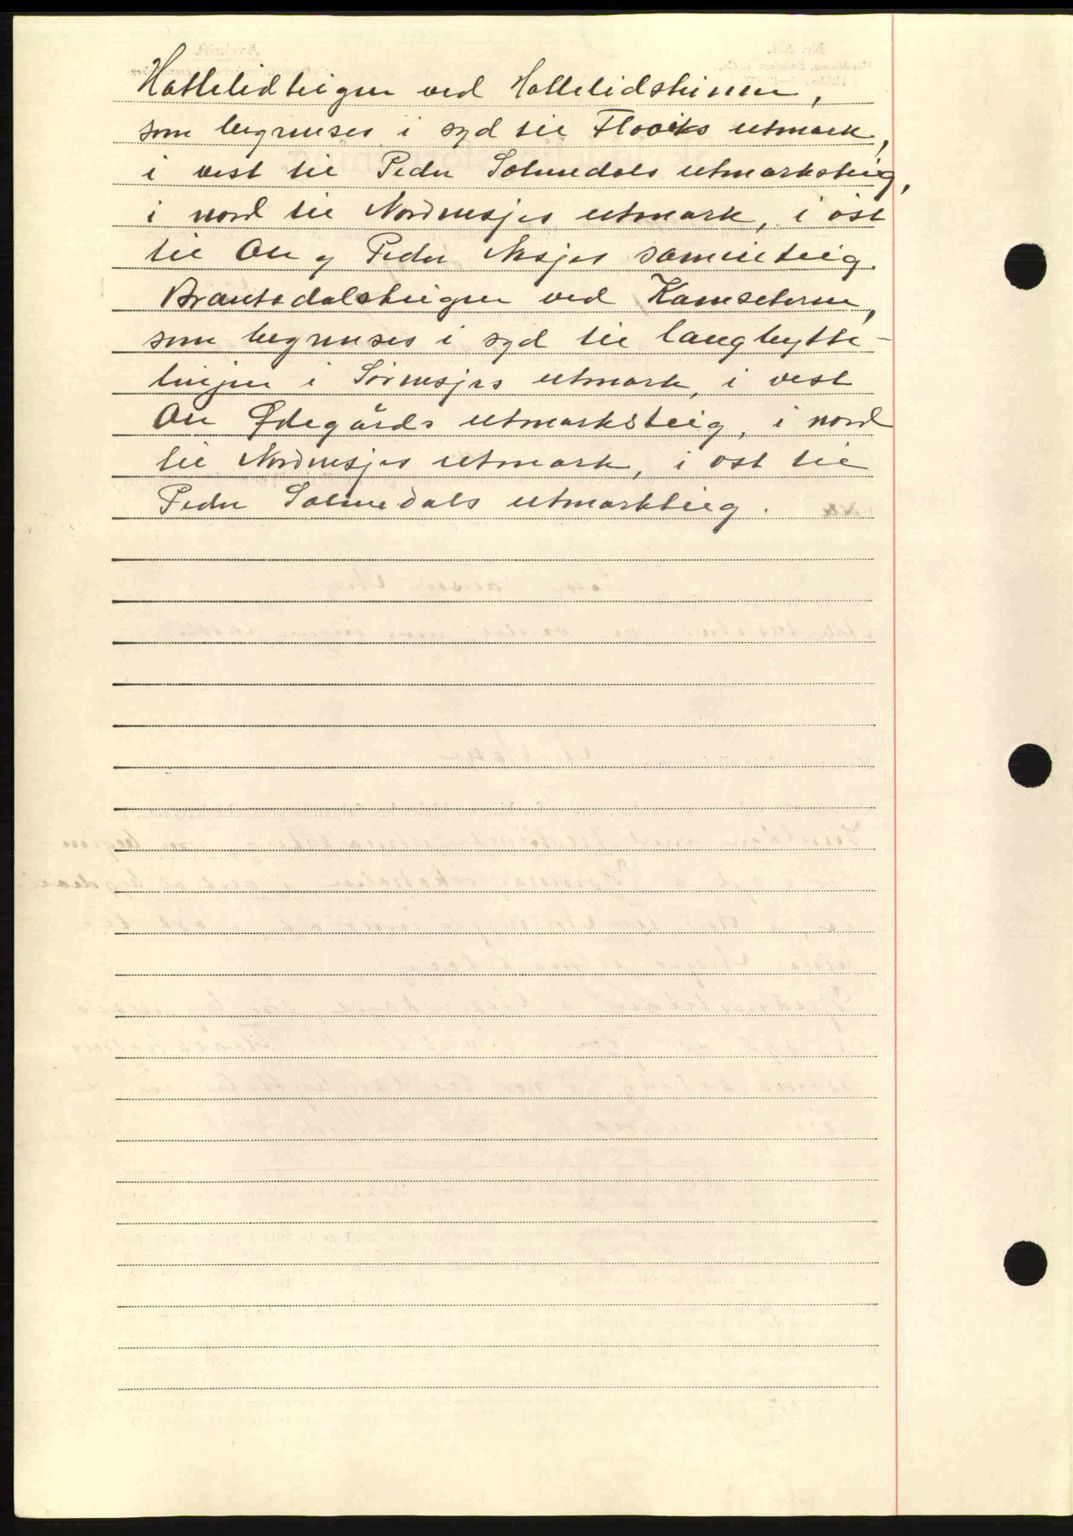 Hattelidteigen ved Hattelidstinnen,
som begrenses i syd til Floviks utmark,
i vest til Peder Solemdals utmarksteig,
i nord til Nordnesjes utmark, i öst
til Ole og Peder Nesjes sameieteig.
Brantsdalsteigen ved Kamseteren,
som begrenses i syd til langbytte-
linjen i Sörnesjes utmark, i vest
Ole Ødegårds utmarksteig, i nord
til Nordnesjes utmark, i öst til
Peder Solemdals utmarkteig.